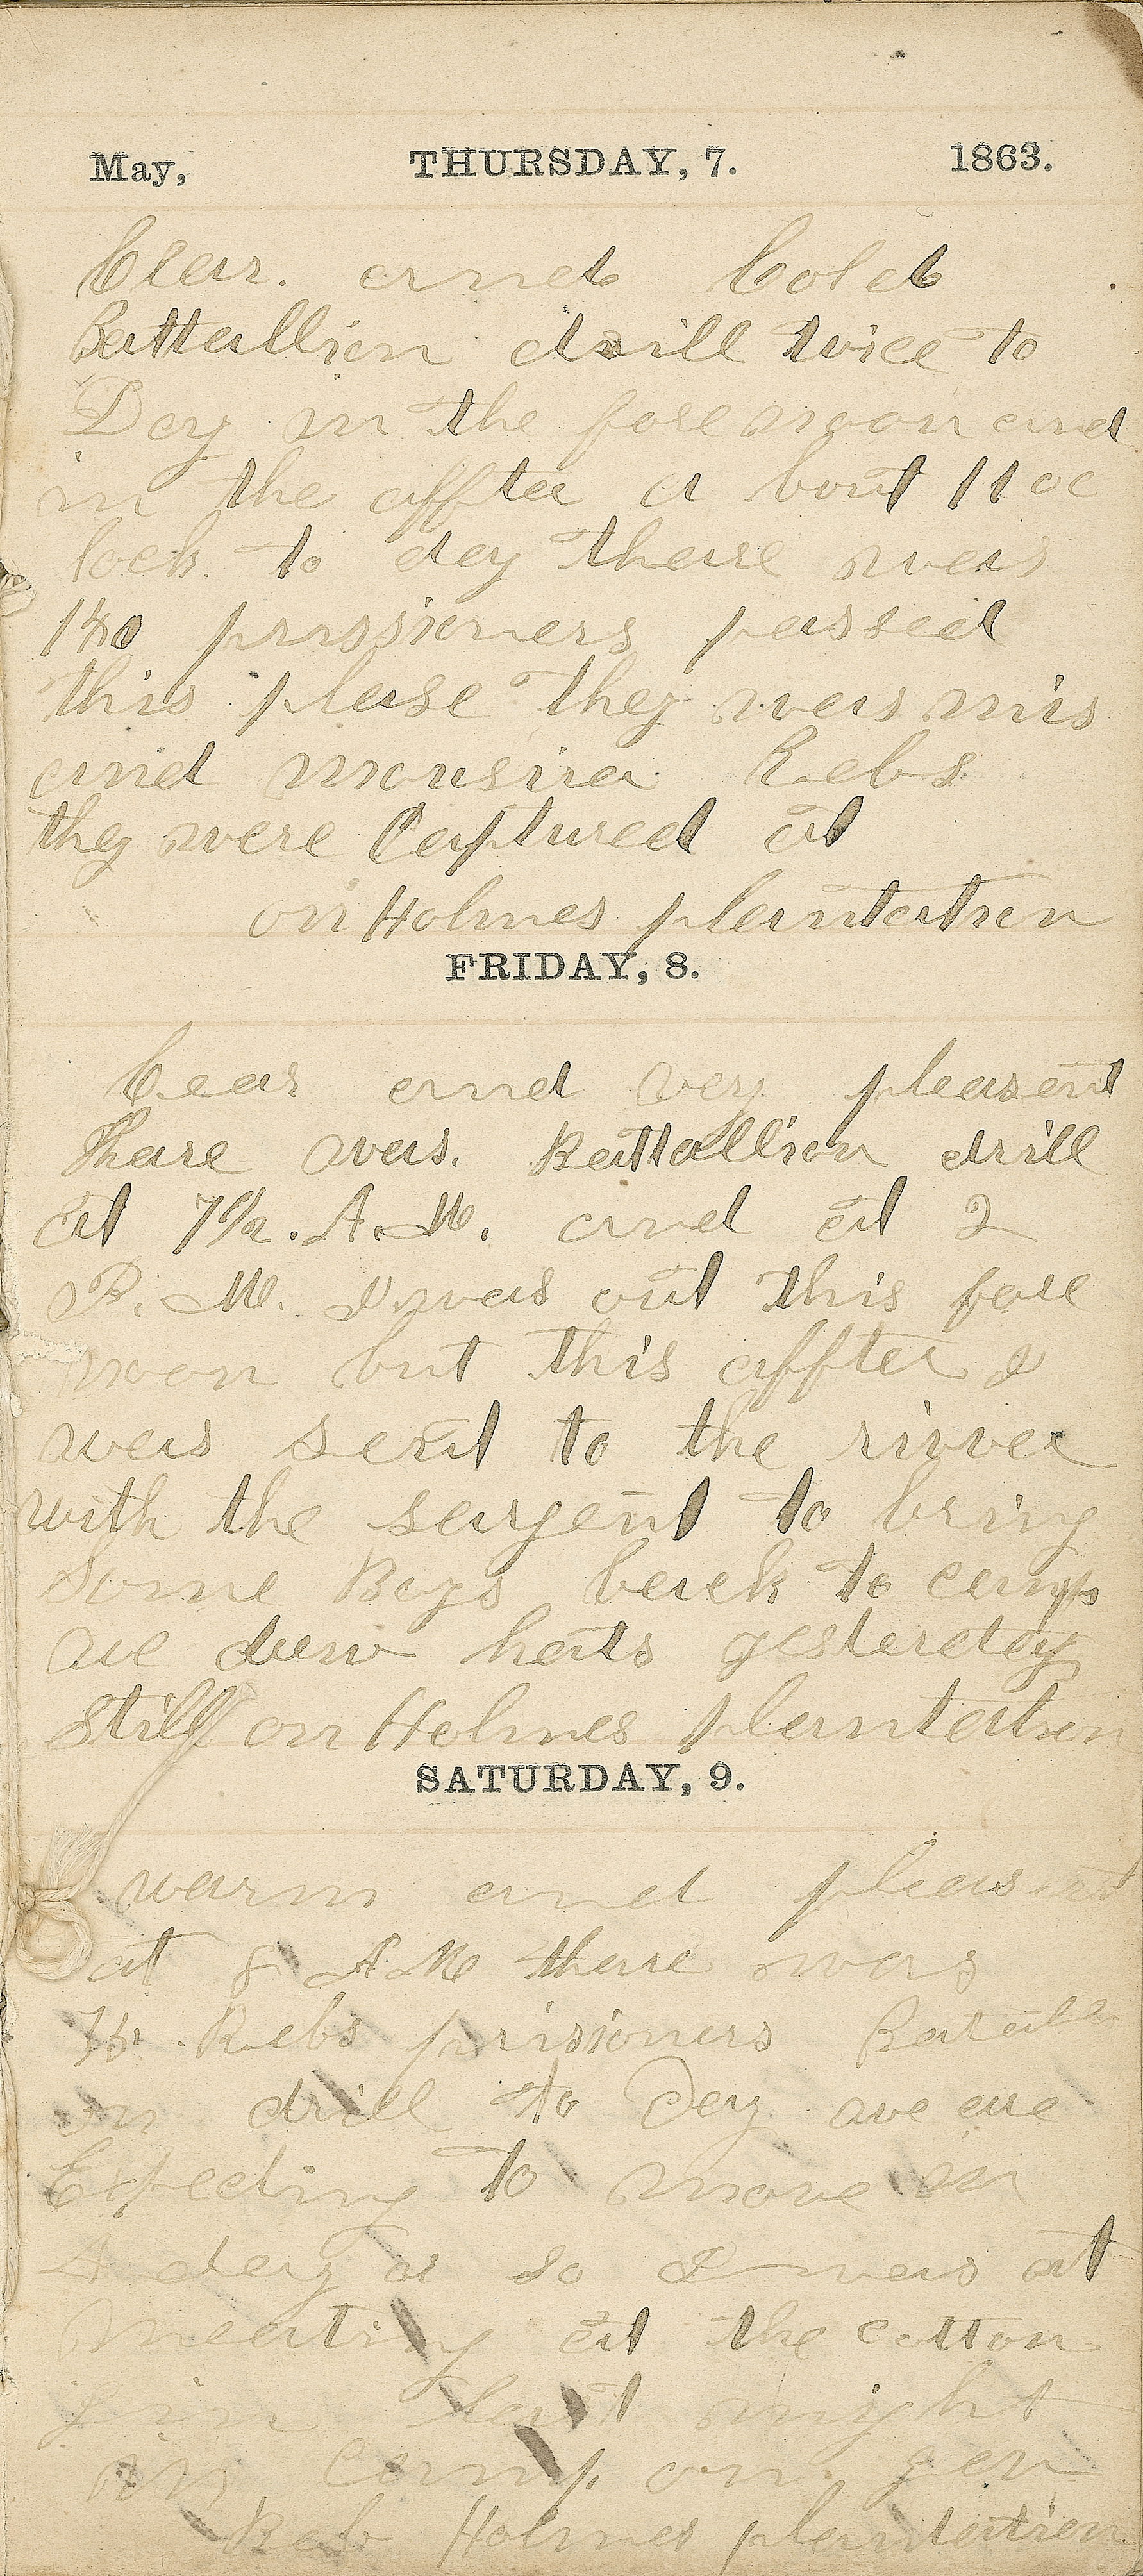 May, THURSDAY, 7. 1863.
Clear. and Cold
Battallion drill twice to
Day in the fore noon and
in the affter a bout 11 oc
lock to day thare was
140 prissioners passed
this plase they was mis
and mousira Rebs
they were Captured at
on Holmes plantation
FRIDAY, 8.
Cear and very pleasent
Thare was. Battallion drill
at 7 1/2. A. M. and at 2
P. M. I was out this fore
noon but this affter I
was sent to the rivver
with the sargent to bring
Some Boys back to camp
we druw hats yesterday
Still on Holmes plantation
SATURDAY, 9.
warm and pleasent
at 8 A M thare was
Rebs prisioners Batalli
on drill to Day we are
Expecting to move in
A day or so I was at
meating at the cotton
Jin last night
in Camp on gen
Reb Holmes plantation